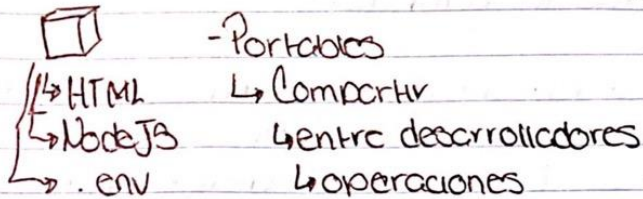 -Portables
↳ HTML ↳ Compartir
↳ NodeJS ↳ entre desarrolladores
↳ .env ↳ operaciones